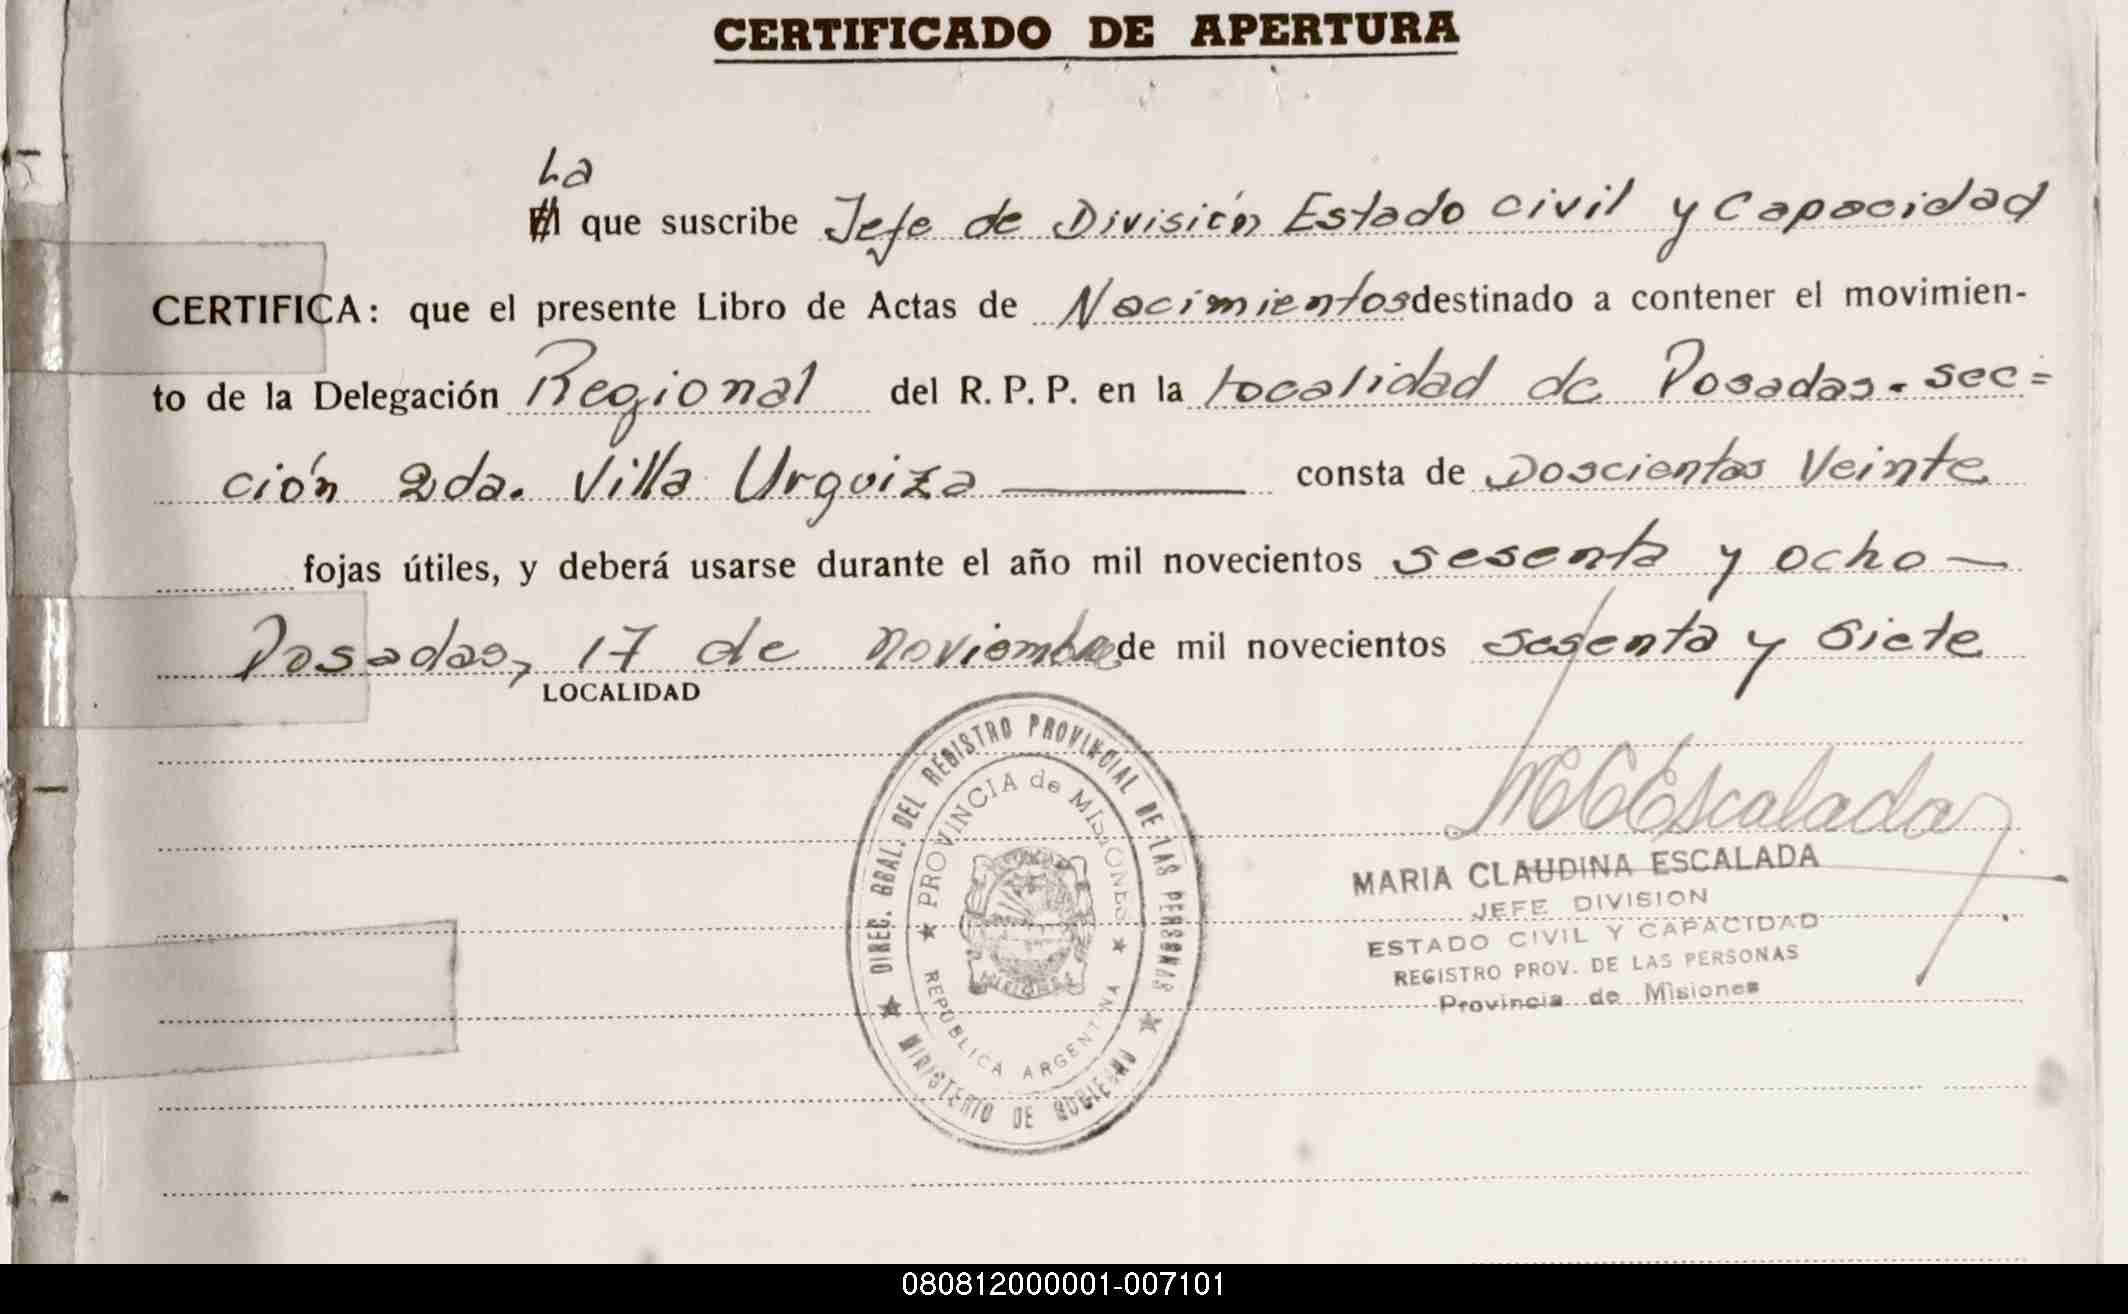 CERTIFICADO DE APERTURA
La
El que suscribe Jefe de División Estado civil y Capacidad
CERTIFICA: que el presente Libro de Actas de Nacimientos destinado a contener el movimien-
to de la Delegación Regional del R. P. P. en la localidad de Posadas. sec=
ción 2da. Villa Urquiza consta de Doscientos Veinte
fojas útiles, y deberá usarse durante el año mil novecientos sesenta y ocho —
Posadas, 17 de noviembre de mil novecientos sesenta y siete
LOCALIDAD
DIREC. GRAL. DEL REGISTRO PROVINCIAL DE LAS PERSONAS
MINISTERIO DE GOBIERNO
PROVINCIA de MISIONES
REPUBLICA ARGENTINA
MCEscalada
MARIA CLAUDINA ESCALADA
JEFE DIVISION
ESTADO CIVIL Y CAPACIDAD
REGISTRO PROV. DE LAS PERSONAS
Provincia de Misiones
080812000001-007101